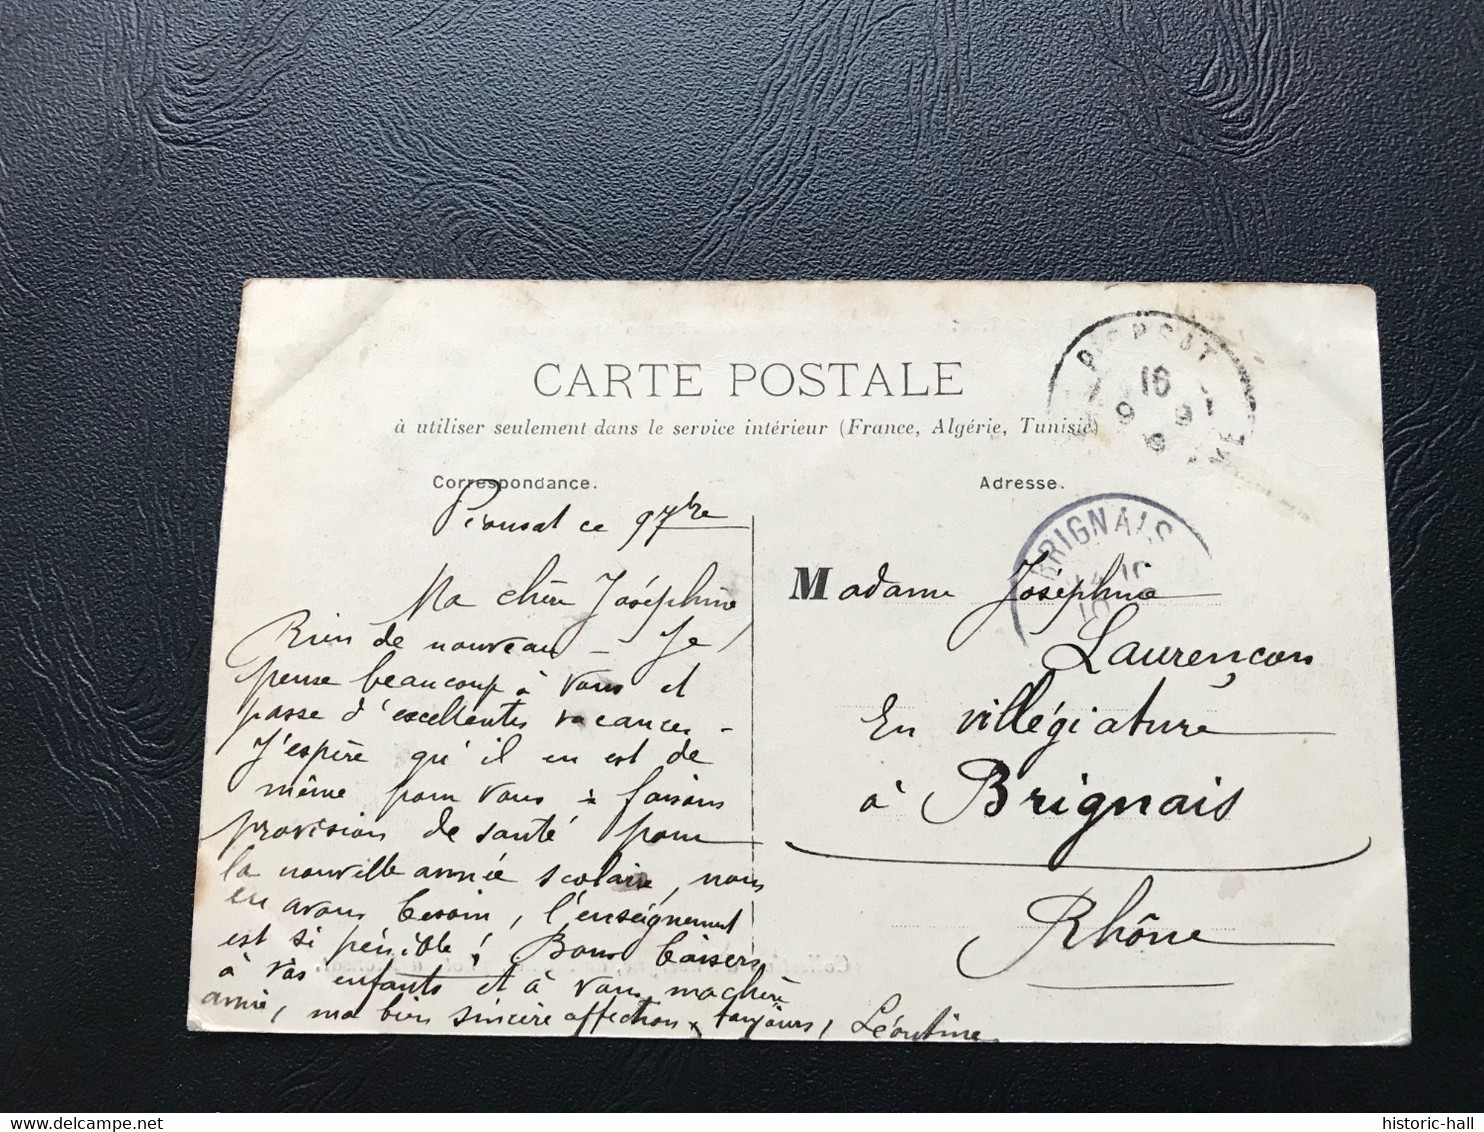 CARTE POSTALE
à utiliser seulement dans le service intérieur (France, Algérie, Tunisie)
Correspondance.
Adresse.
PIONSAT
16
9 9
BRIGNAIS
Pionsat ce 9 7bre
Ma chère Joséphine,
Rien de nouveau – Je
pense beaucoup à vous et
passe d'excellentes vacances –
J'espère qu'il en est de
même pour vous : faisons
provision de santé pour
la nouvelle année scolaire, nous
en avons besoin, l'enseignement
est si pénible ! Bons baisers
à vos enfants et à vous, ma chère
amie, ma bien sincère affection, toujours, Léontine
Madame Joséphine
Laurençon
En villégiature
à Brignais
Rhône
historic-hall